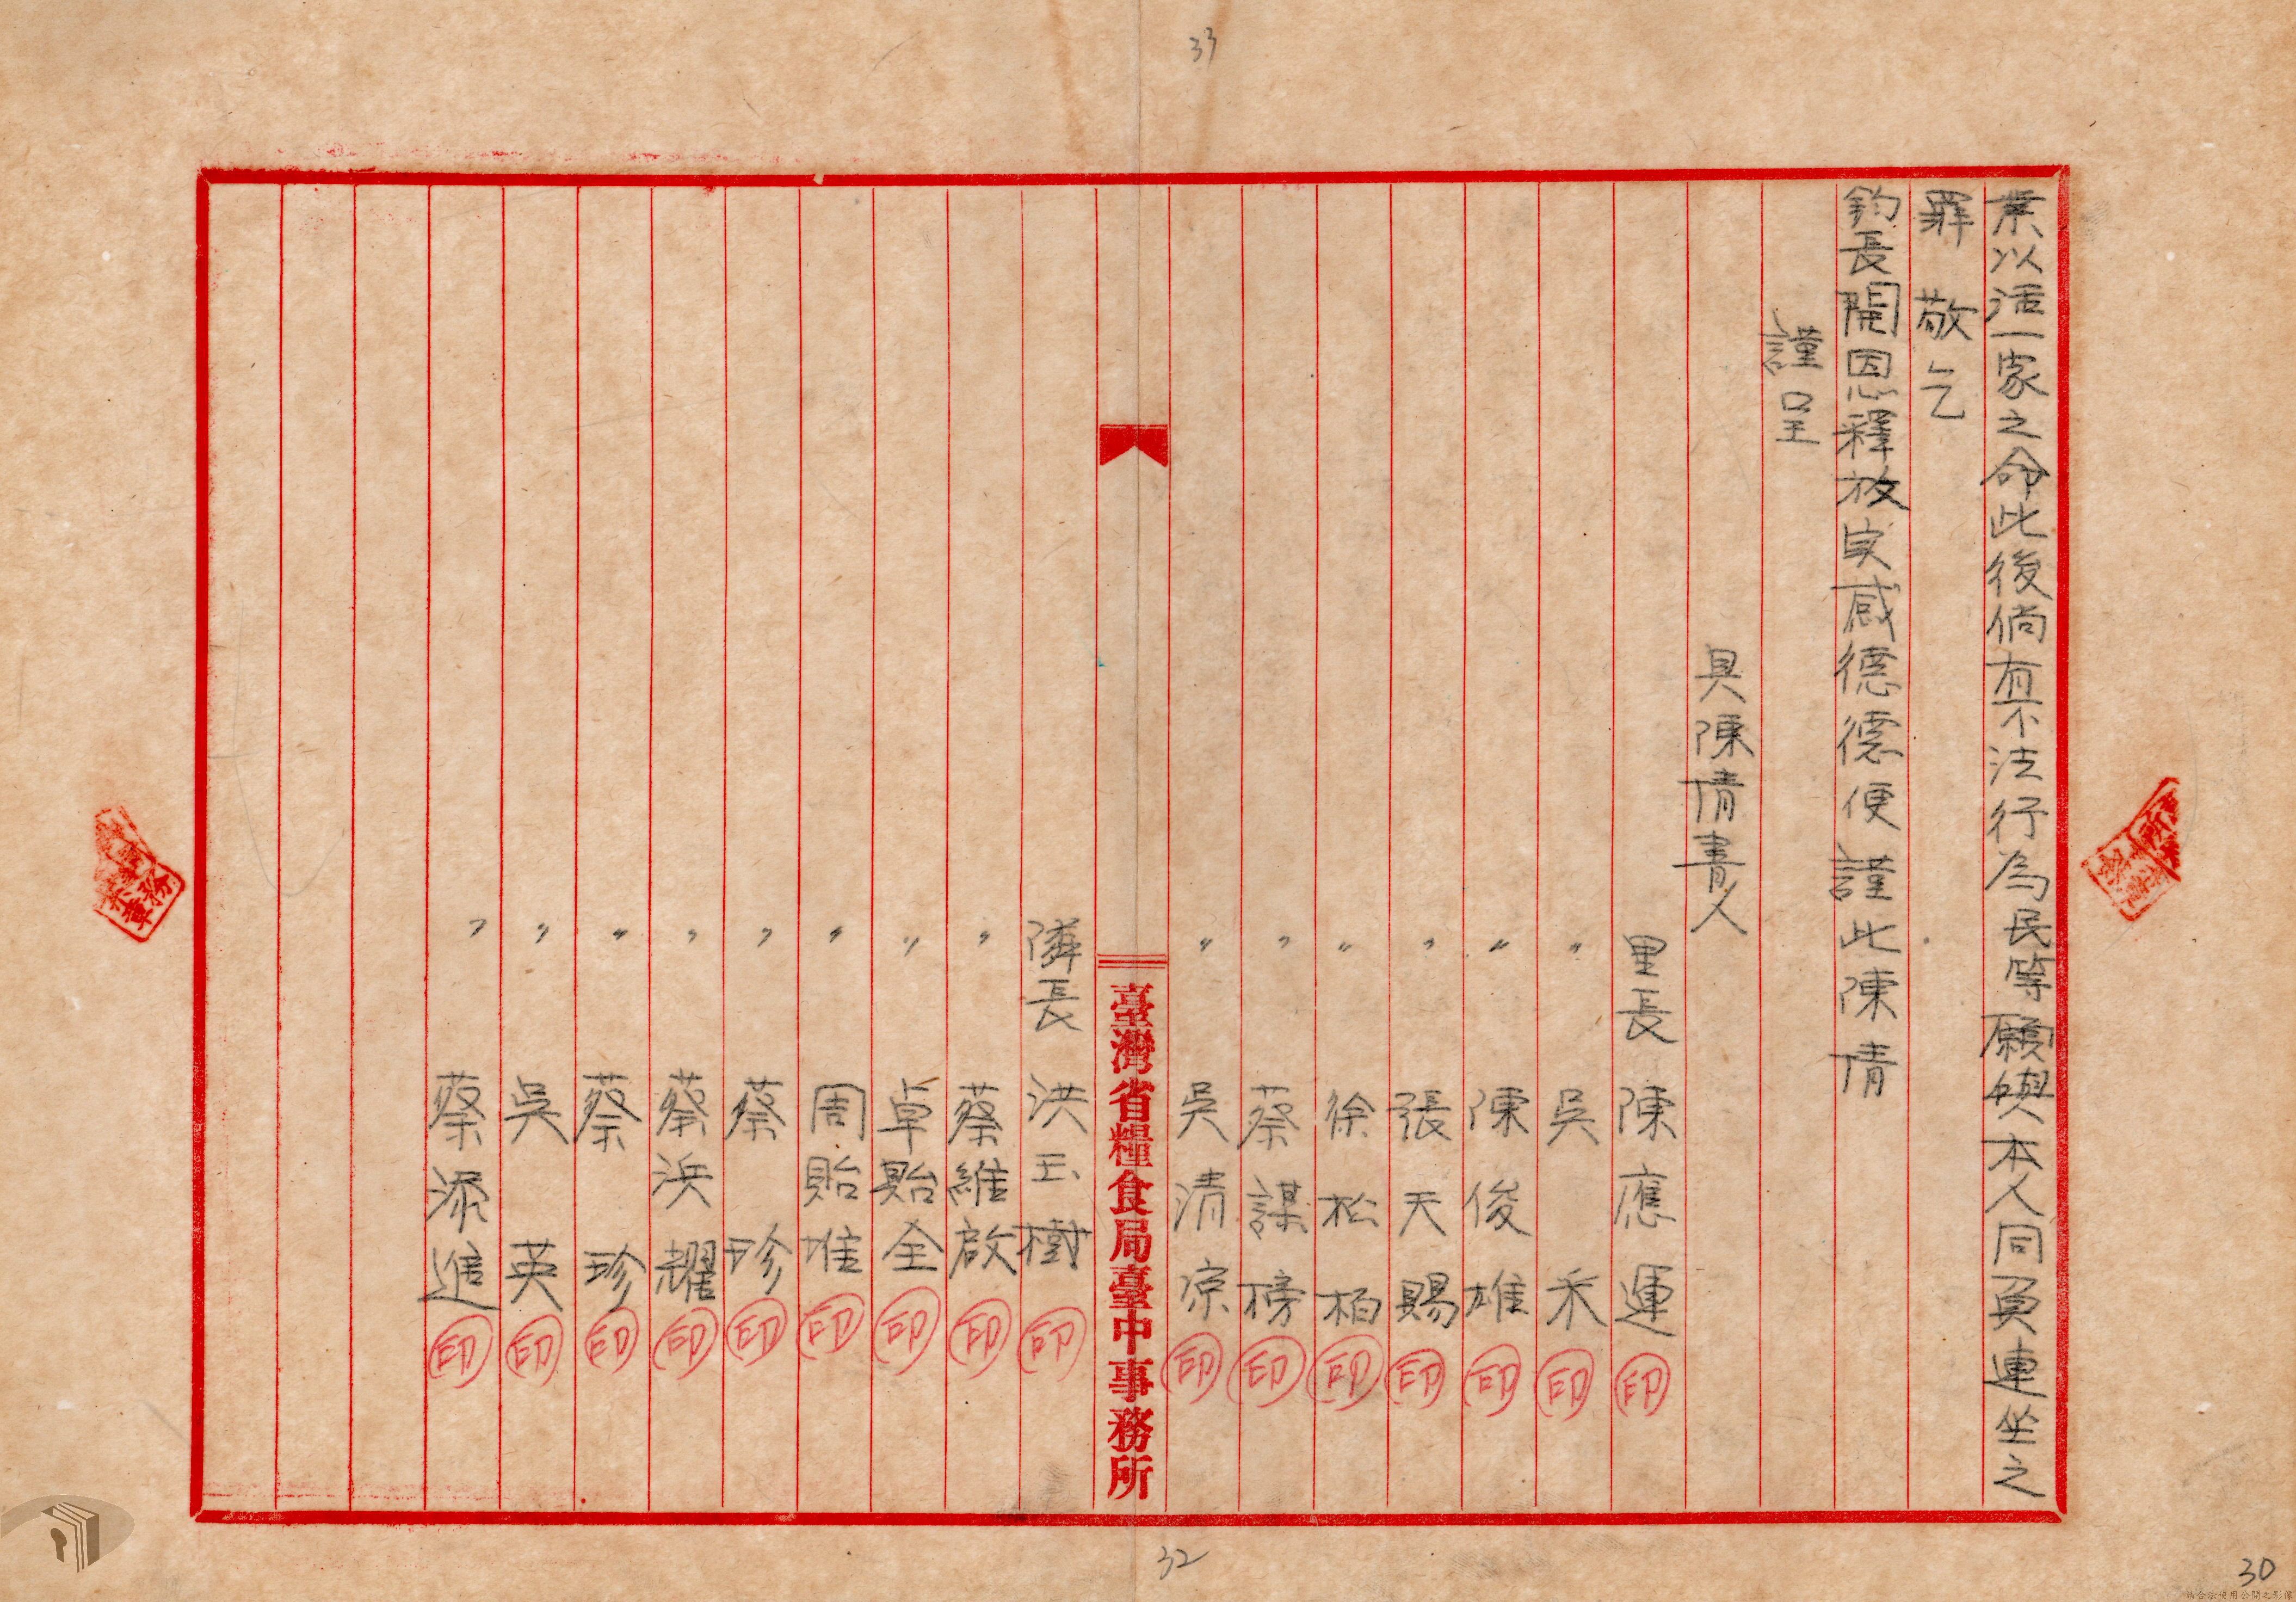 33
業以活一家之命此後倘有不法行為民等願與本人同負連坐之
罪　敬乞
鈞長開恩釋放実感德德便謹此陳情
謹呈
具陳情書人
里長　陳應運㊞
〃　吳　禾㊞
〃　陳俊雄㊞
〃　張天賜㊞
〃　徐松柏㊞
〃　蔡謀榜㊞
〃　吳清凉㊞
臺灣省糧食局臺中事務所
隣長　洪玉樹㊞
〃　蔡維啟㊞
〃　卓貽全㊞
〃　周貽堆㊞
〃　蔡　珍㊞
〃　蔡浜耀㊞
〃　蔡　珍㊞
〃　吳　英㊞
〃　蔡添進㊞
32
30
請合法使用公開之影像